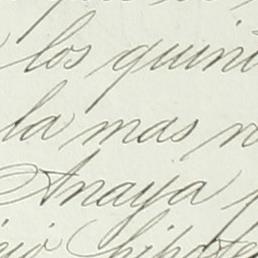 los quini
la mas n
Anaya
hipote